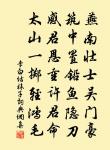 燕南壮士吴门豪
筑中置铅鱼隐刀
感君恩重许君命
太山一掷轻鸿毛
李白结袜子词典网集